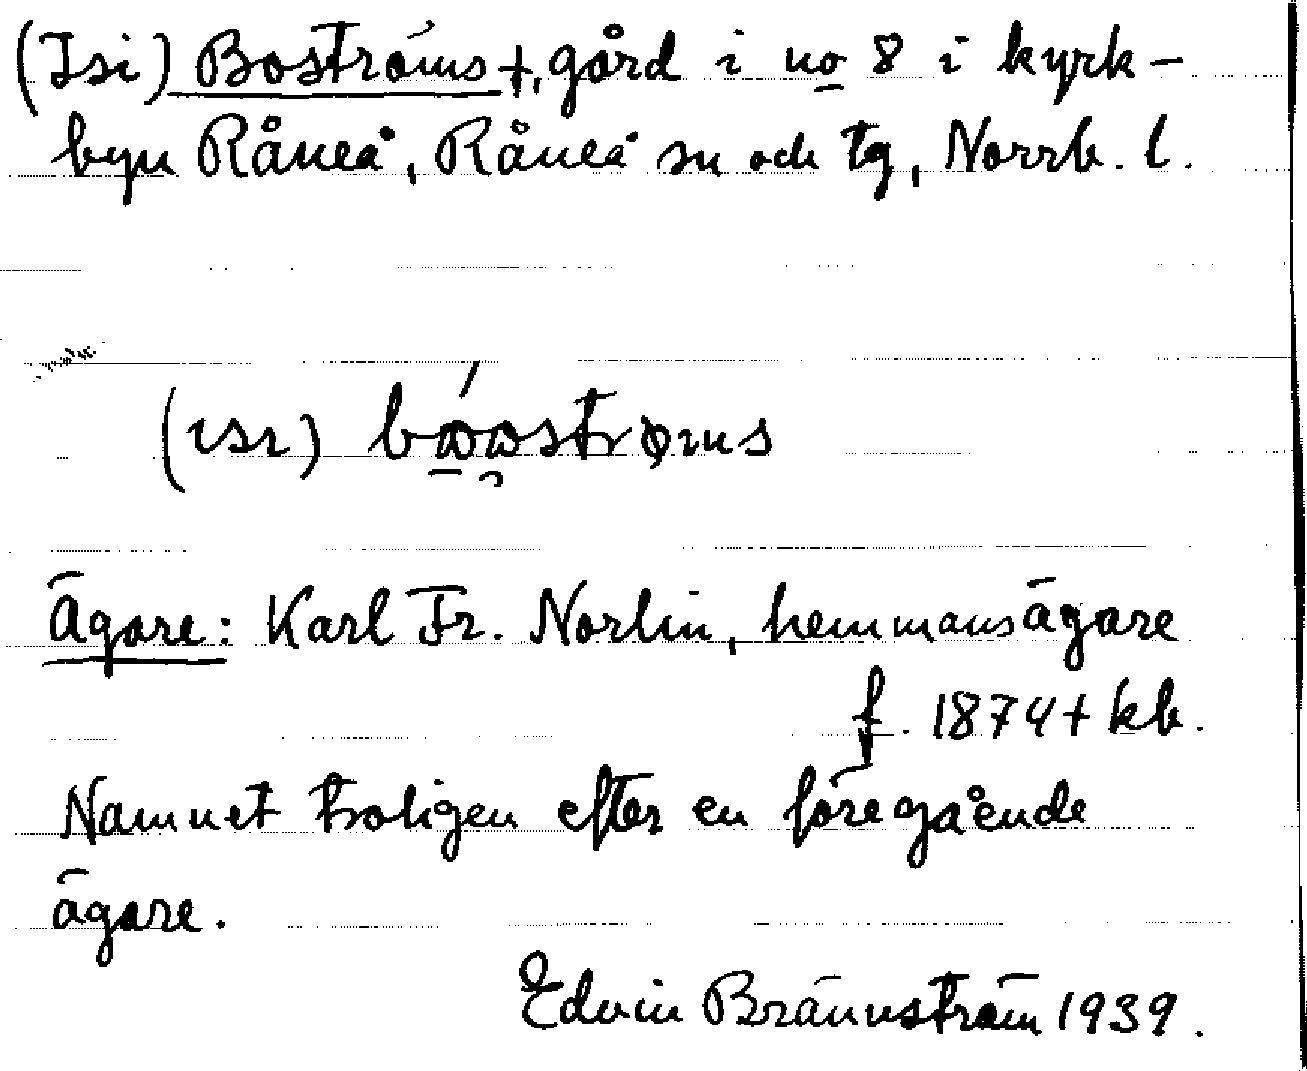 (Isi) Boströms +, gård i no 8 i kyrk-
byn Råneå, Råneå sn och tg, Norrb. l.
(ısı) bɷ́ɷströms
Ägare: Karl Fr. Norlin, hemmansägare
f. 1874 + kb.
Namnet troligen efter en föregående
ägare.
Edvin Brännström 1939.